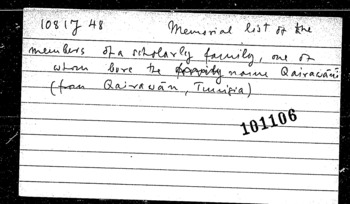 1081J 48 Memorial list of the
members of a scholarly family, one of
whom bore the family name Qairawānī
(from Qairawān, Tunisia)
101106